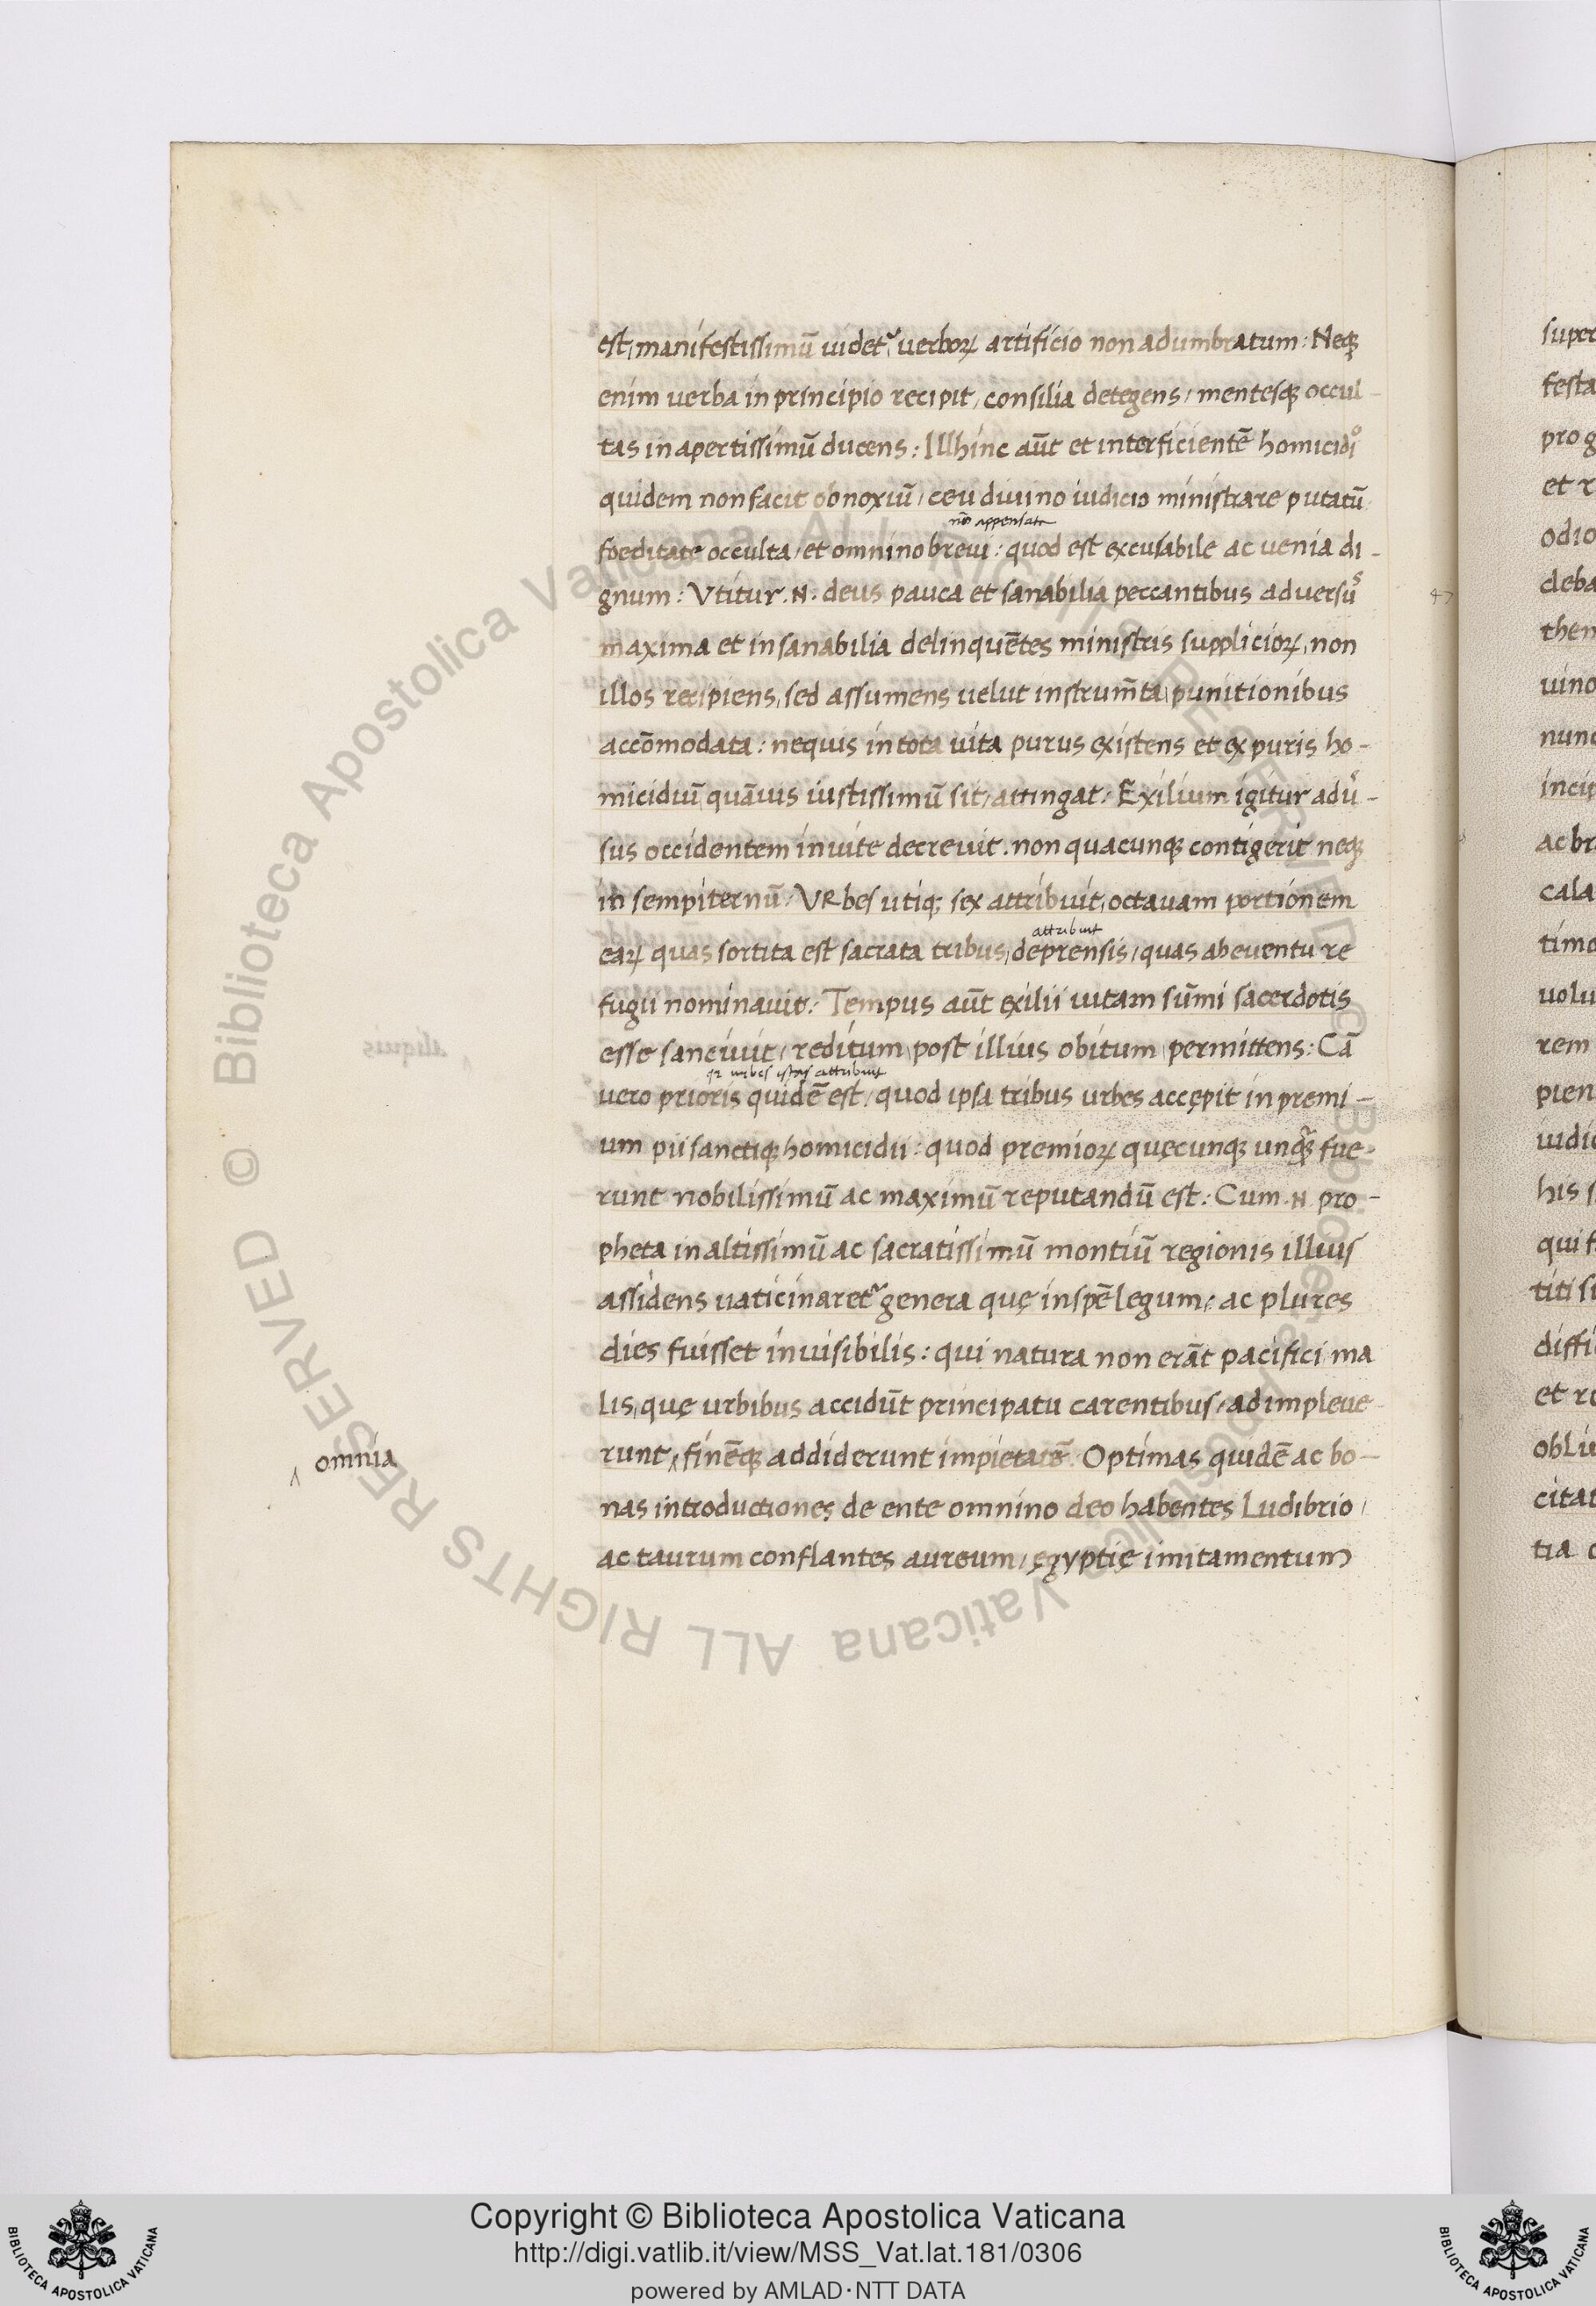 est, manifestissimū uidet᷑ uerborꝝ artificio non adumbratum: Neqꝫ
enim uerba in principio recipit, consilia detegens, mentesqꝫ occul-
tas in apertissimū ducens: Illhinc aūt et interficientē homicidiͦ
quidem non facit obnoxiū, ceu diuino iudicio ministrare putatū
nō appensate
foeditate occulta, et omnino breui: quod est excusabile ac uenia di-
gnum: Vtitur .N. deus pauca et sanabilia peccantibus aduersuˢ
maxima et insanabilia delinquētes ministris suppliciorꝝ, non
illos recipiens, sed assumens uelut instrum̄ta, punitionibus
accōmodata: nequis in tota uita purus existens et ex puris ho-
micidiū, quāuis iustissimū sit, attingat: Exilium igitur adu̓-
sus occidentem inuite decreuit. non quacunqꝫ contigerit neqꝫ
in sempiternū, VRbes utiqꝫ sex attribuit, octauam portionem
attribuit
earꝝ quas sortita est sacrata tribus, deprensis, quas ab euentu re
fugii nominauit: Tempus aūt exilii uitam sūmi sacerdotis
esse sanciuit, reditum, post illius obitum, permittens: Cā
qr urbes istas attribuit
uero prioris quidē est, quod ipsa tribus urbes accępit in premi-
um pii sanctiqꝫ homicidii: quod premiorꝝ quęcunqꝫ unqꝫ̄ fue-
runt nobilissimū ac maximū reputandū est: Cum .N. pro-
pheta in altissimū ac sacratissimū montiū regionis illius
assidens uaticinaret᷑ genera quę in spē legum, ac plures
dies fuisset inuisibilis: qui natura non erāt pacifici, ma
lis, quę urbibus accidūt principatu carentibus, adimpleue
runt, ‸ finēqꝫ addiderunt impietatē. Optimas quidē ac bo-
‸ omnia
nas introductiones de ente omnino deo habentes Ludibrio,
ac taurum conflantes aureum, ęgyptię imitamentum
super
festa
pro g
et r
odio
deba
them
uino
nunc
incip
ac br
cala
timo
uolu
rem
pien
iudic
his s
qui f
titi si
diffi
et re
obliu
citat
tia c
© Biblioteca Apostolica Vaticana ALL RIGHTS RESERVED © Biblioteca Apostolica Vaticana ALL RIGHTS RESERVED
Copyright © Biblioteca Apostolica Vaticana
http://digi.vatlib.it/view/MSS_Vat.lat.181/0306
powered by AMLAD·NTT DATA
BIBLIOTECA APOSTOLICA VATICANA
BIBLIOTECA APOSTOLICA VATICANA